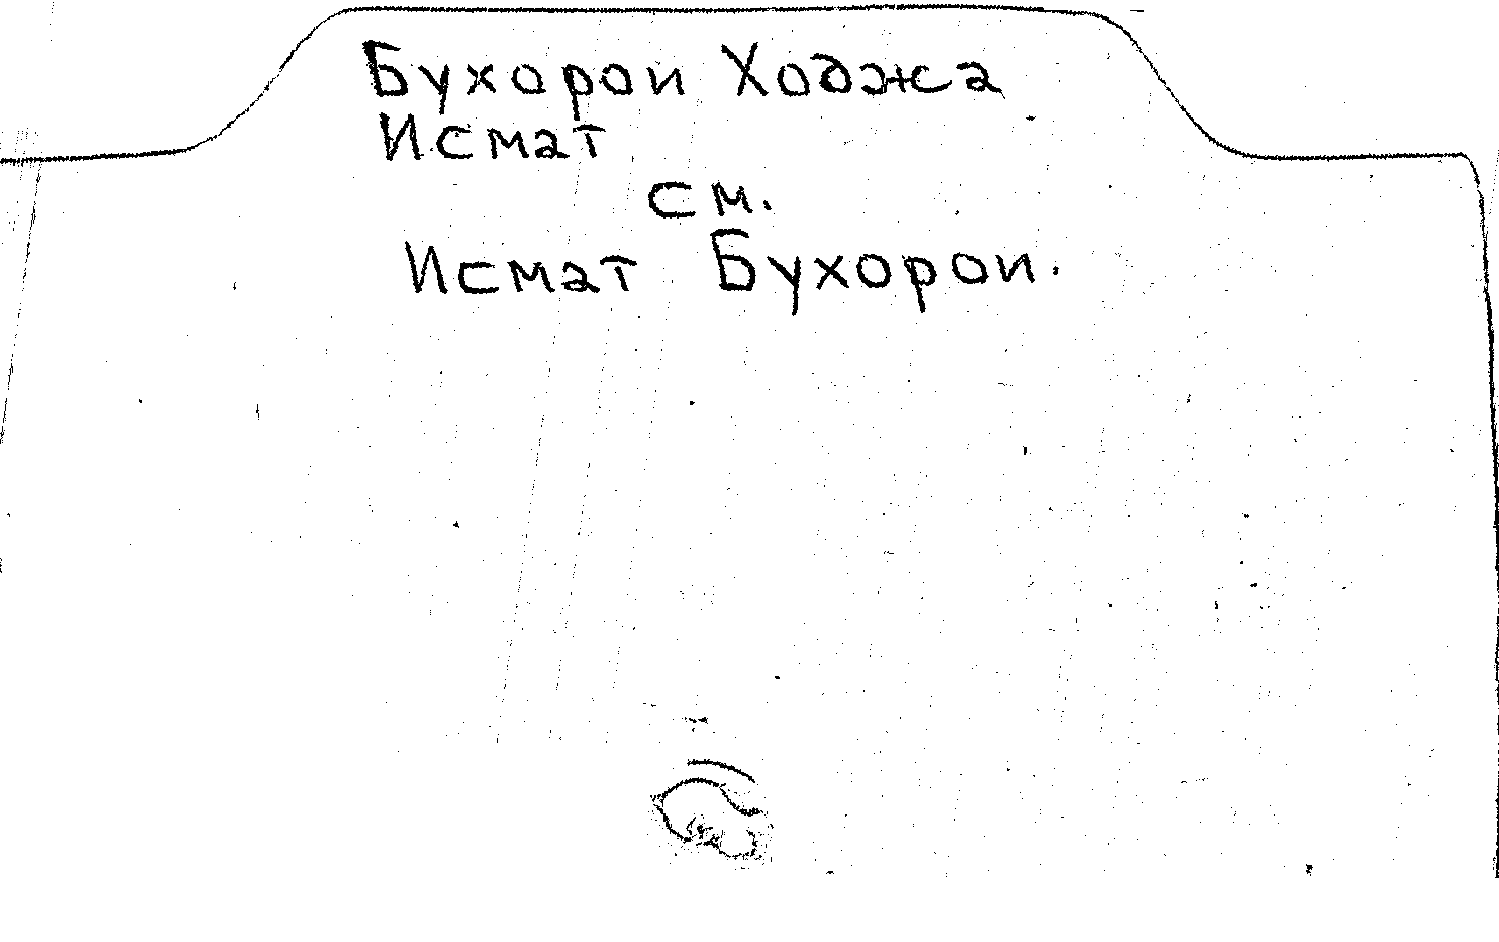 Бухорои Ходжа
Исмат
см.
Исмат Бухорои.